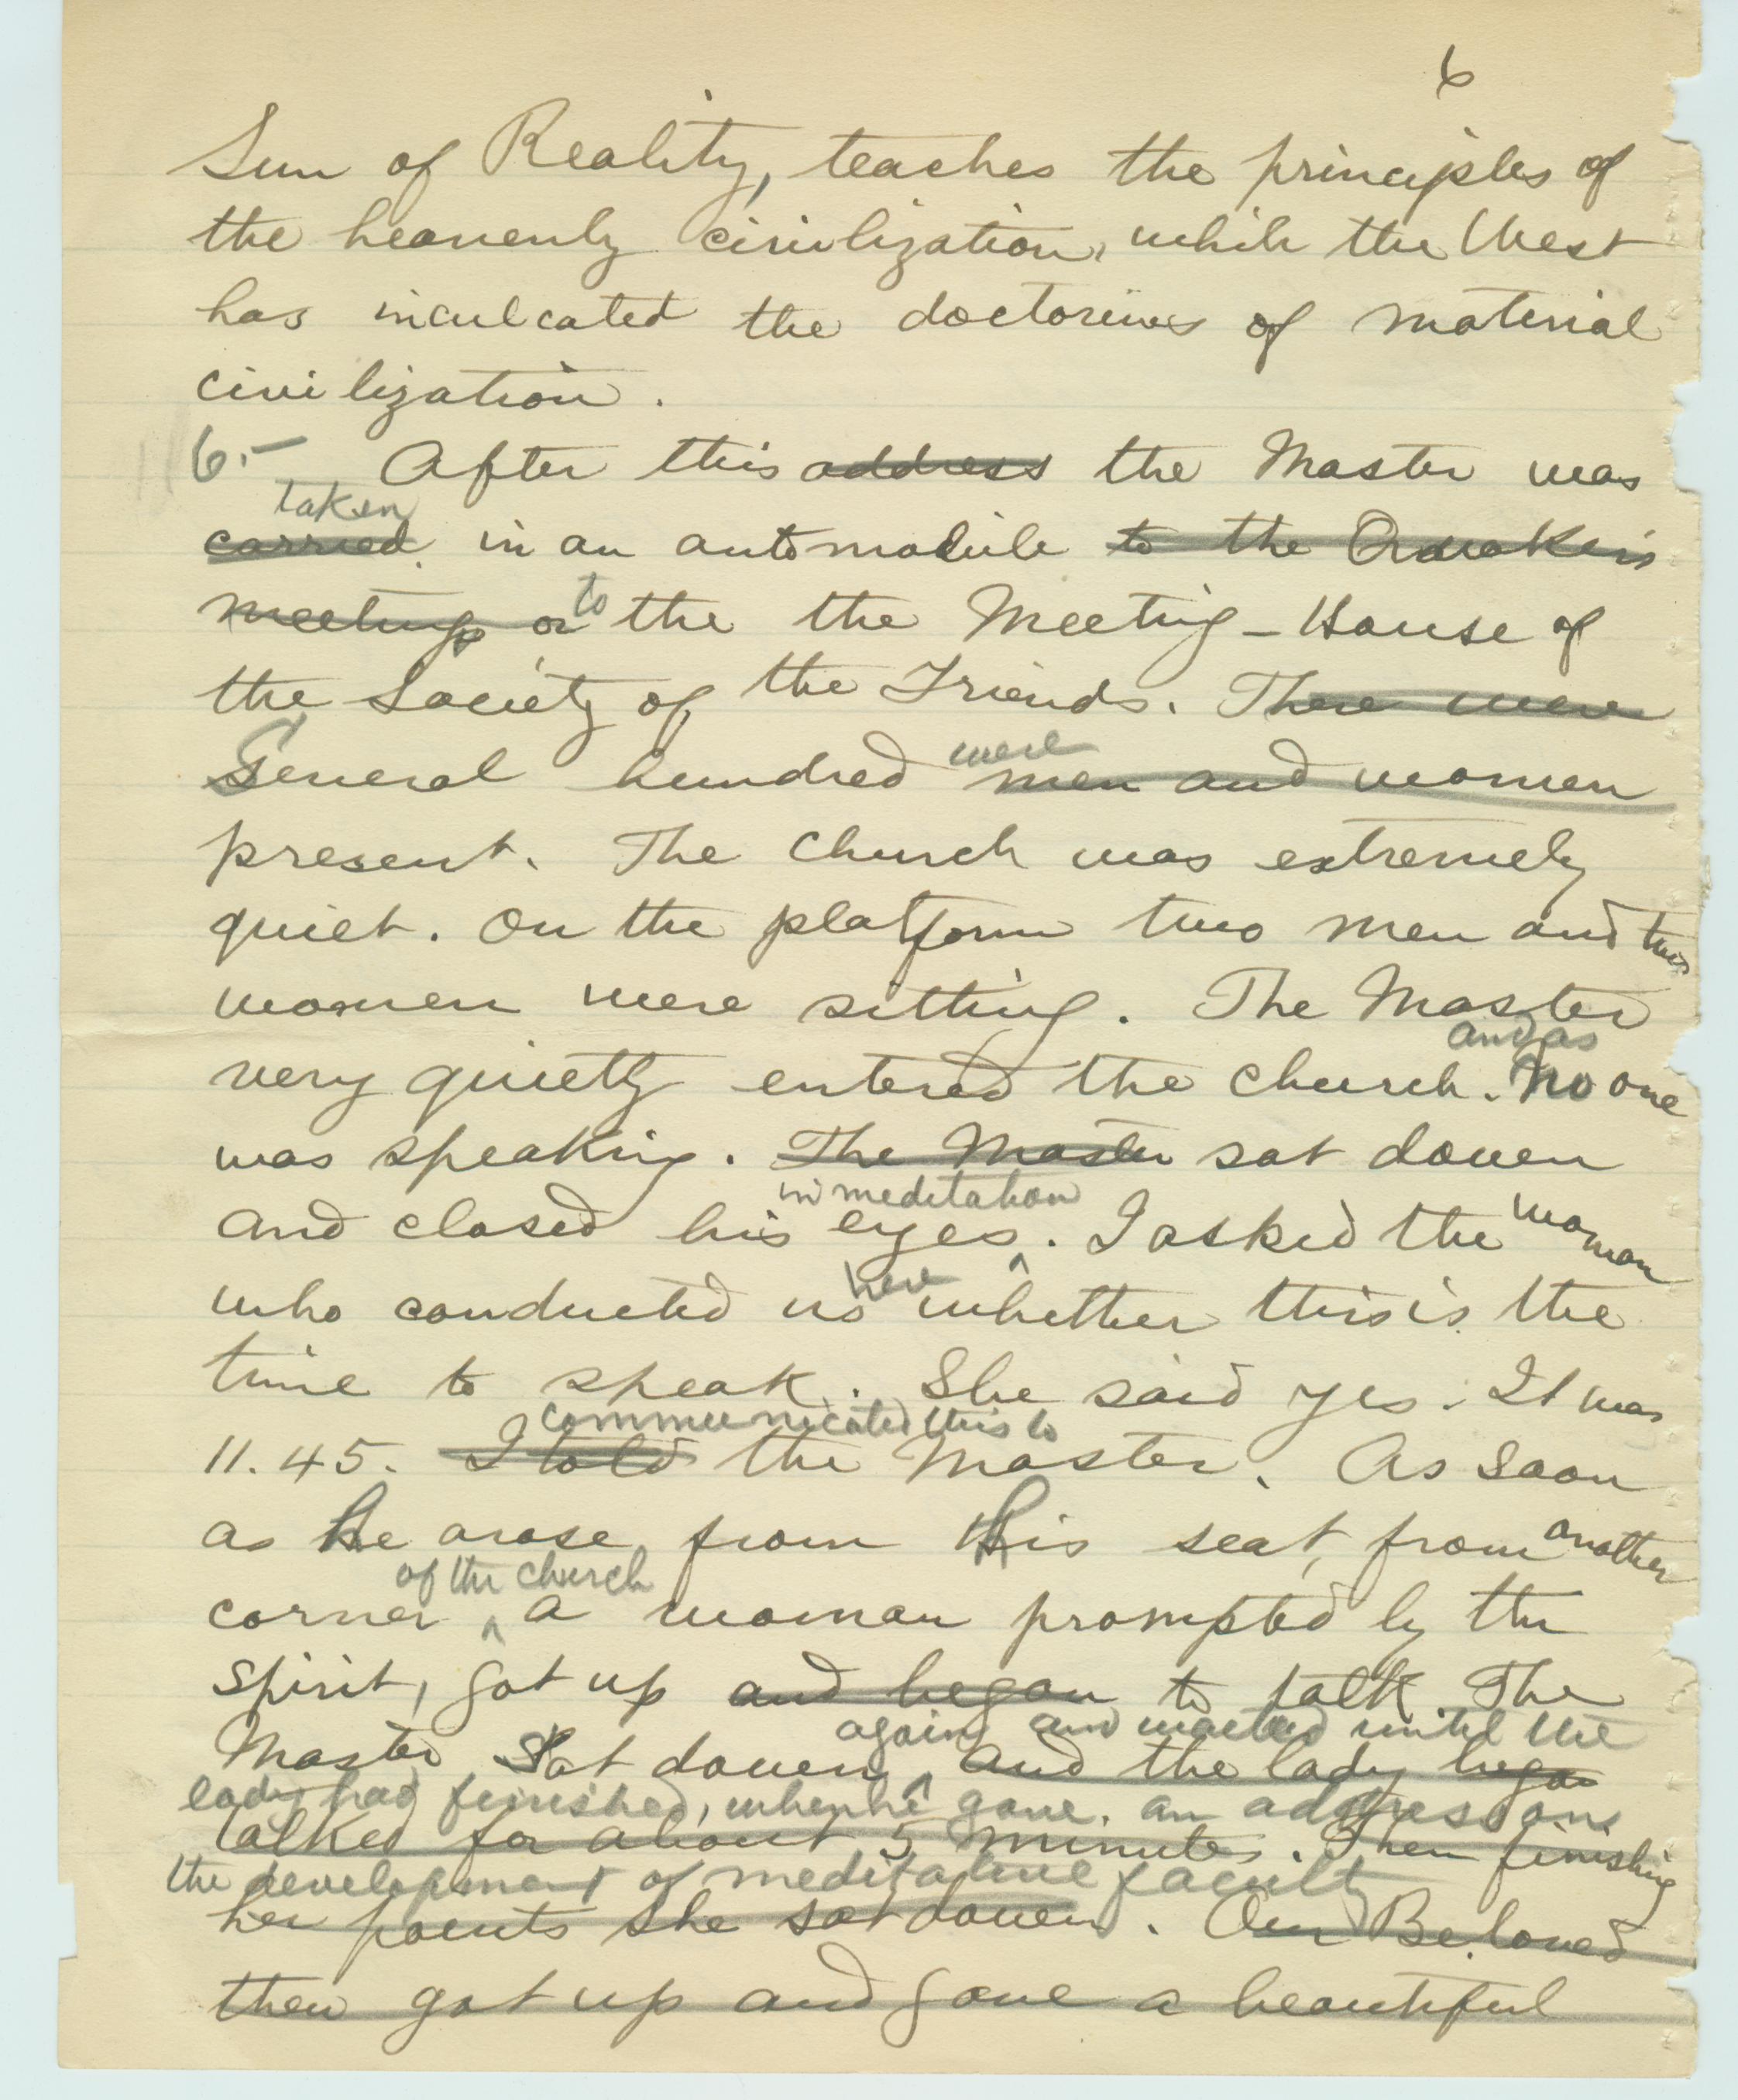 6
Sun of Reality, teaches the principles of
the heavenly civilization, while the West
has inculcated the doctorines of material
civilization.
6.- After this address the Master was
taken
carried in an automobile to the Quaker's
meetings or to the the Meeting-House of
the Society of the Friends. There were
were
Several hundred men and women
present. The Church was extremely
quiet. On the platform two men and two
women were sitting. The Master
and as
very quietly entered the church. No one
was speaking. The Master sat down
in meditation
and closed his eyes. I asked the woman
here
who conducted us whether this is the
time to speak. She said yes. It was
communicated this to
11.45. I told the Master. As soon
as He arose from His seat, from another
of the church
corner a woman prompted by the
spirit, got up and began to talk. The
again and waited until the
Master sat down and the lady began
lady had finished, when he gave an address on
talked for about 5 minutes. Then finishing
the development of meditative faculty
her points she sat down. Our Beloved
then got up and gave a beautiful